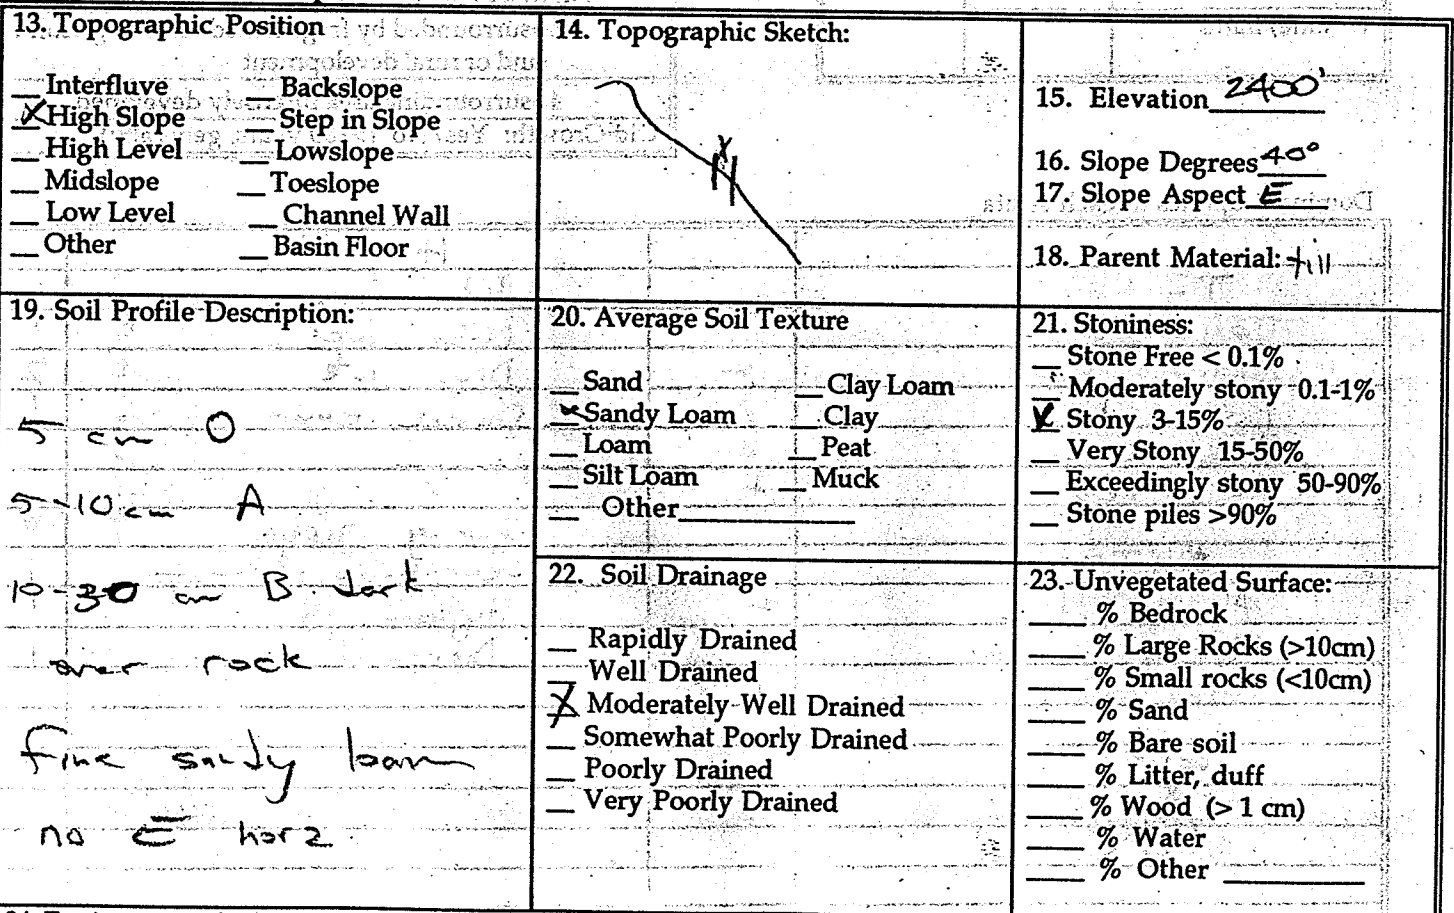 13. Topographic Position
__Interfluve __Backslope
X High Slope __Step in Slope
__High Level __Lowslope
__Midslope __Toeslope
__Low Level __Channel Wall
__Other __Basin Floor
14. Topographic Sketch:
X
15. Elevation 2400'
16. Slope Degrees 40°
17. Slope Aspect E
18. Parent Material: till
19. Soil Profile Description:
5 cm O
5-10 cm A
10-30 cm B dark
over rock
fine sandy loam
no E horz
20. Average Soil Texture
__Sand __Clay Loam
X Sandy Loam __Clay
__Loam __Peat
__Silt Loam __Muck
__ Other____________
21. Stoniness:
__ Stone Free < 0.1%
__ Moderately stony 0.1-1%
X Stony 3-15%
__ Very Stony 15-50%
__ Exceedingly stony 50-90%
__ Stone piles >90%
22. Soil Drainage
__ Rapidly Drained
__ Well Drained
X Moderately Well Drained
__ Somewhat Poorly Drained
__ Poorly Drained
__ Very Poorly Drained
23. Unvegetated Surface:
____ % Bedrock
____ % Large Rocks (>10cm)
____ % Small rocks (<10cm)
____ % Sand
____ % Bare soil
____ % Litter, duff
____ % Wood (> 1 cm)
____ % Water
____ % Other __________